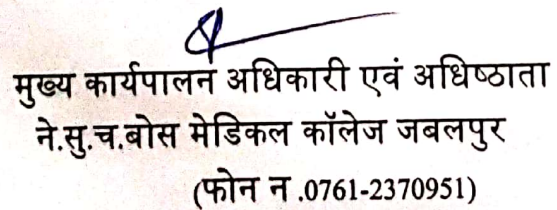 मुख्य कार्यपालन अधिकारी एवं अधिष्ठाता
ने.सु.च.बोस मेडिकल कॉलेज जबलपुर
(फोन न .0761-2370951)